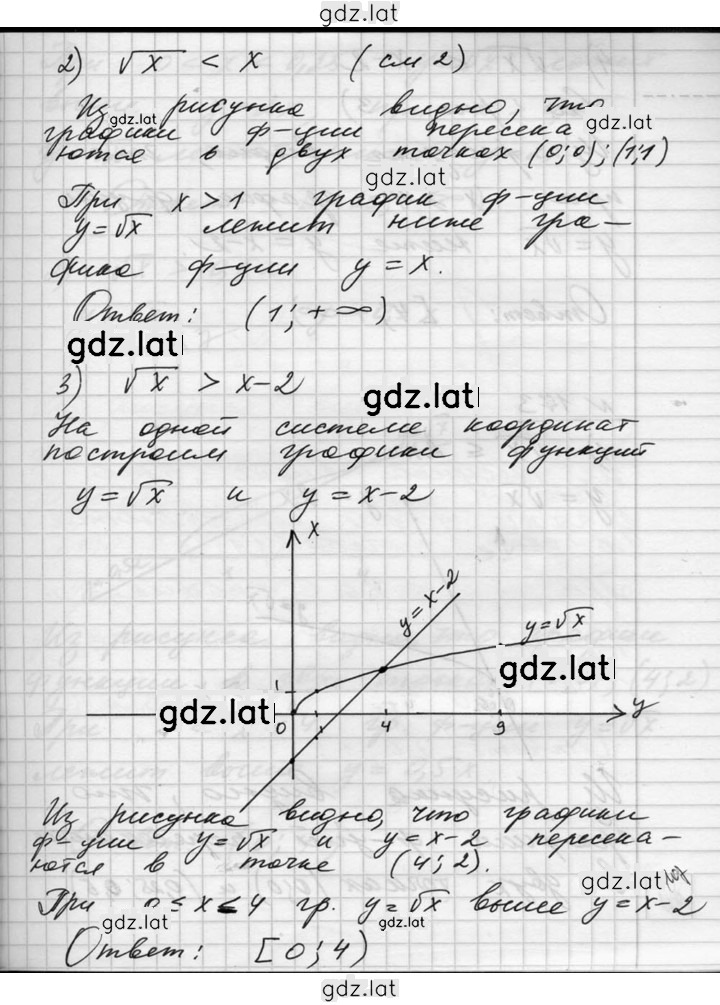 gdz.lat
2) √x < x (см 2)
Из рисунка видно, что
gdz.lat
gdz.lat
графики ф-ции пересека
ются в двух точках (0;0); (1;1)
gdz.lat
При x > 1 график ф-ции
y = √x лежит ниже гра-
фика ф-ции y = x.
Ответ: (1; +∞)
gdz.lat
3) √x > x-2
gdz.lat
На одной системе координат
построим графики функций
y = √x и y = x-2
x
y = x-2
y = √x
gdz.lat
1
gdz.lat
0 1 4 9 y
Из рисунка видно, что графики
ф-ции y = √x и y = x-2 пересека-
ются в точке (4; 2).
gdz.lat
При 0 ≤ x < 4 гр. y = √x выше y = x-2
gdz.lat
gdz.lat
Ответ: [0; 4)
gdz.lat